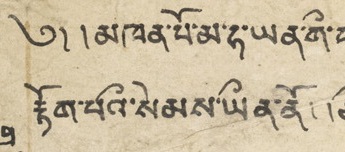 ༄། །མཁན་པོ་མ་ཧ་ཡན་གི་
རྟོག་པའི་སེམས་ཡིན་ནོ། །